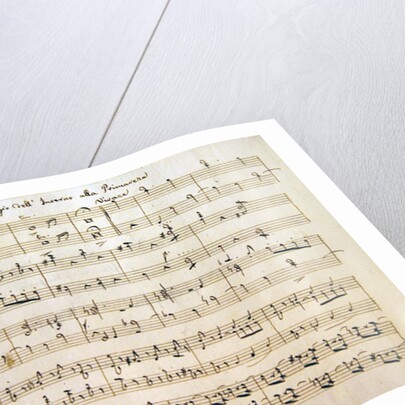 dell' Inverno alla Primavera
Vivace